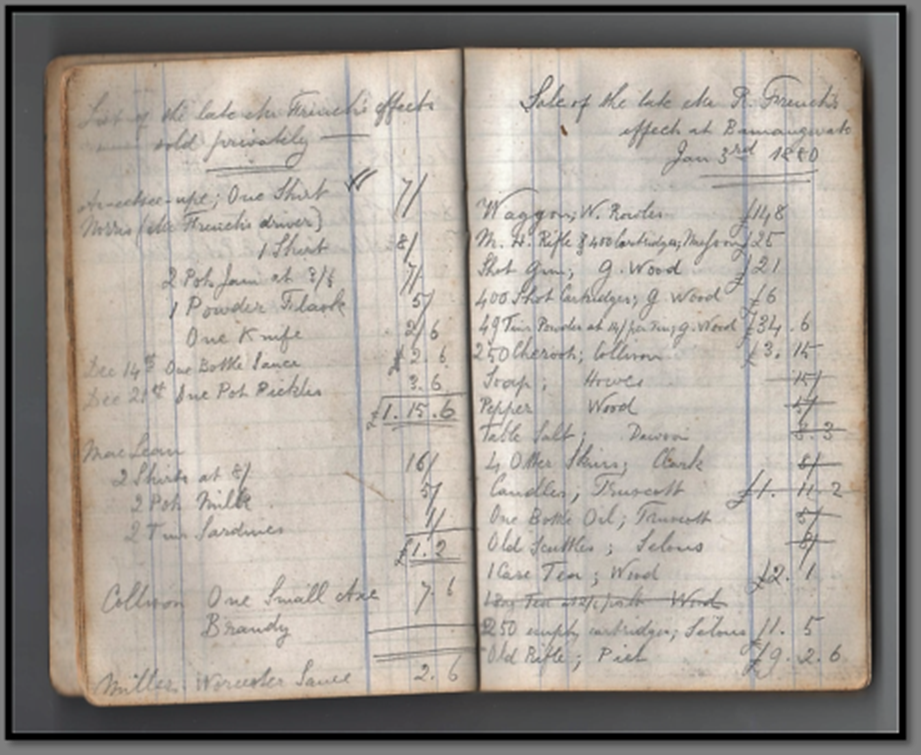 List of the late Mr French's effects
sold privately
One Shirt 7/
Norris (Mr French's driver)
1 Shirt 8/
2 Pots Jam at 3/6 7/
1 Powder Flask 5/
One Knife 2/6
Dec 14th One Bottle Sauce £ 2 6
Dec 21st One Pot Pickles 3.6
£1.15.6
MacLean
2 Shirts at 8/ 16/
2 Pots Milk 5/
2 Tins Sardines 1/
£1.2
Collison One Small Axe 7.6
Brandy
Miller. Worcester Sauce 2.6
Sale of the late Mr R. French's
effects at Bamangwato
Jan 3rd 1880
Waggon; W. Rowles £148
M. H. Rifle & 400 Cartridges; £25
Shot Gun; G. Wood £21
400 Shot Cartridges; G Wood £6
49 Tins Powder at 14/ per tin; G. Wood £34.6
250 Cheroots; Collison £3.15
Soap; Howes 15/
Pepper Wood 5/
Table Salt; Dawson 8.3
4 Otter Skins; Clark 8/
Candles; Truscott £1.11.2
One Bottle Oil; Truscott 5/
Old Scuttles; Selous 8/
1 Case Tea; Wood £2.1
Wood
250 empty cartridges; Selous 11.5
Old Rifle; Piet £9.2.6